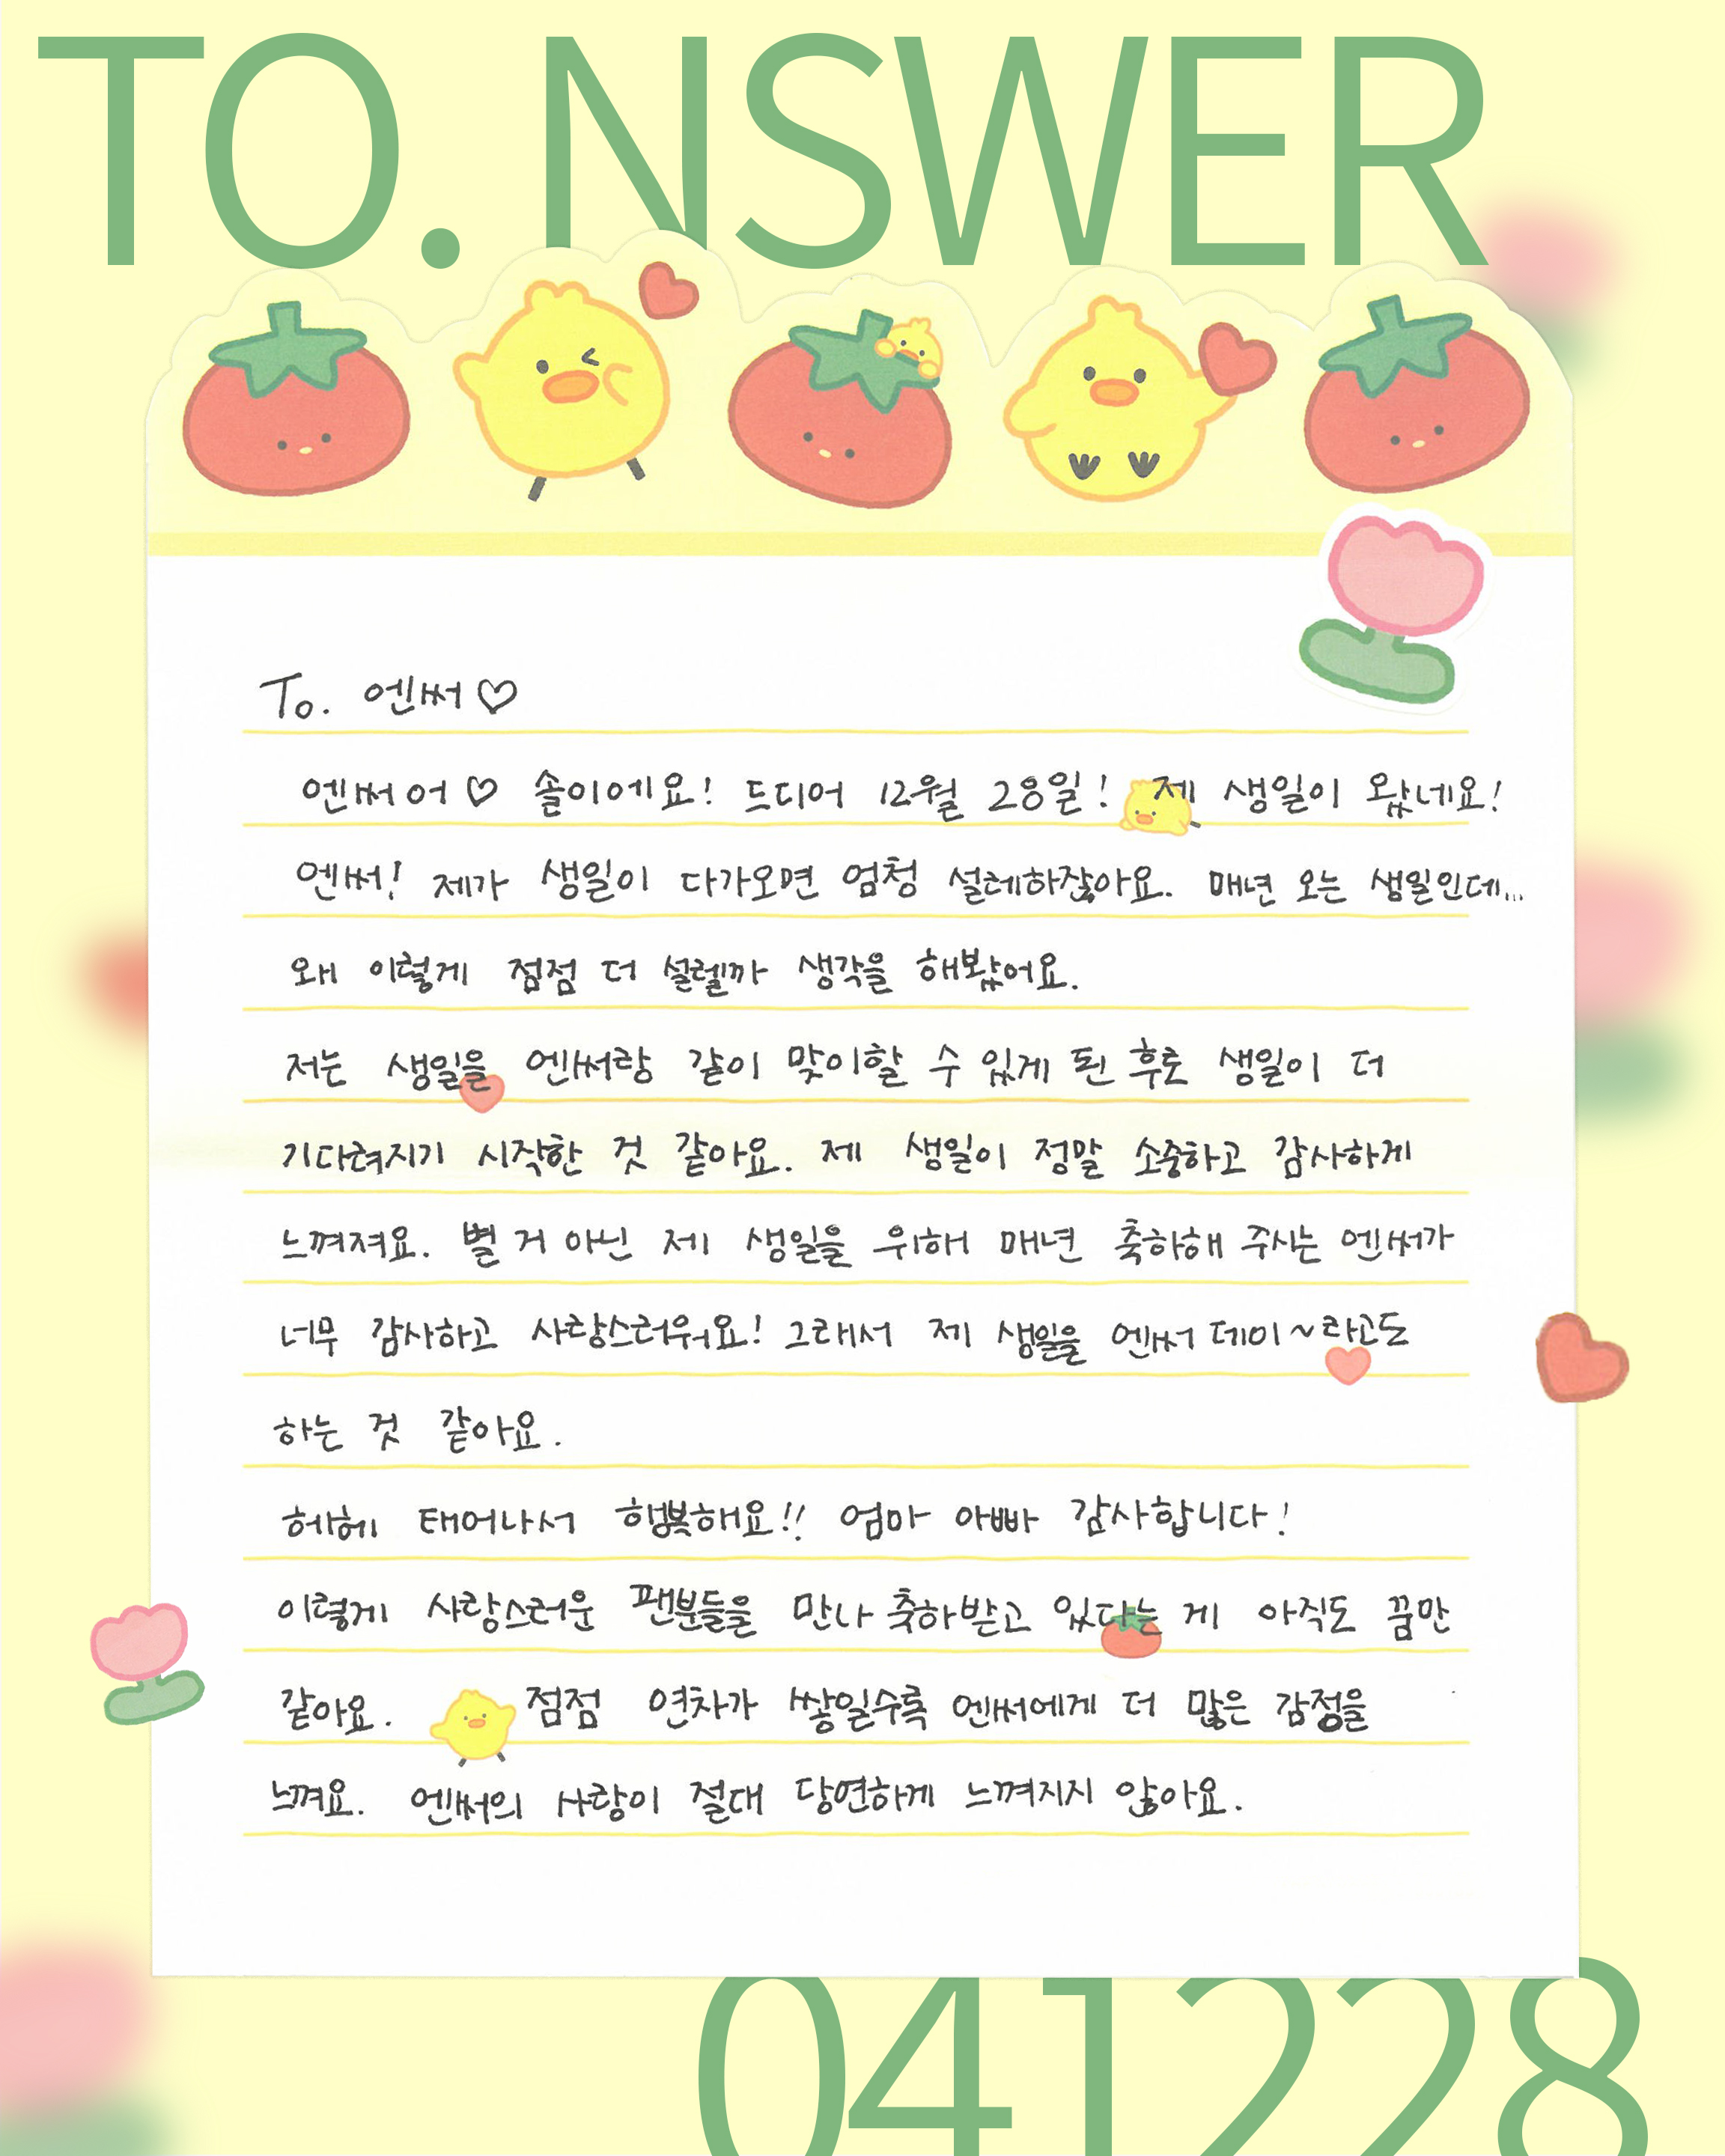 TO. NSWER
To. 엔써♡
엔써어♡ 솔이에요! 드디어 12월 28일! 제 생일이 왔네요!
엔써! 제가 생일이 다가오면 엄청 설레하잖아요. 매년 오는 생일인데...
왜 이렇게 점점 더 설렐까 생각을 해봤어요.
저는 생일을 엔써랑 같이 맞이할 수 있게 된 후로 생일이 더
기다려지기 시작한 것 같아요. 제 생일이 정말 소중하고 감사하게
느껴져요. 별 거 아닌 제 생일을 위해 매년 축하해 주시는 엔써가
너무 감사하고 사랑스러워요! 그래서 제 생일을 엔써 데이~라고도
하는 것 같아요.
헤헤 태어나서 행복해요!! 엄마 아빠 감사합니다!
이렇게 사랑스러운 팬분들을 만나 축하받고 있다는 게 아직도 꿈만
같아요. 점점 연차가 쌓일수록 엔써에게 더 많은 감정을
느껴요. 엔써의 사랑이 절대 당연하게 느껴지지 않아요.
041228